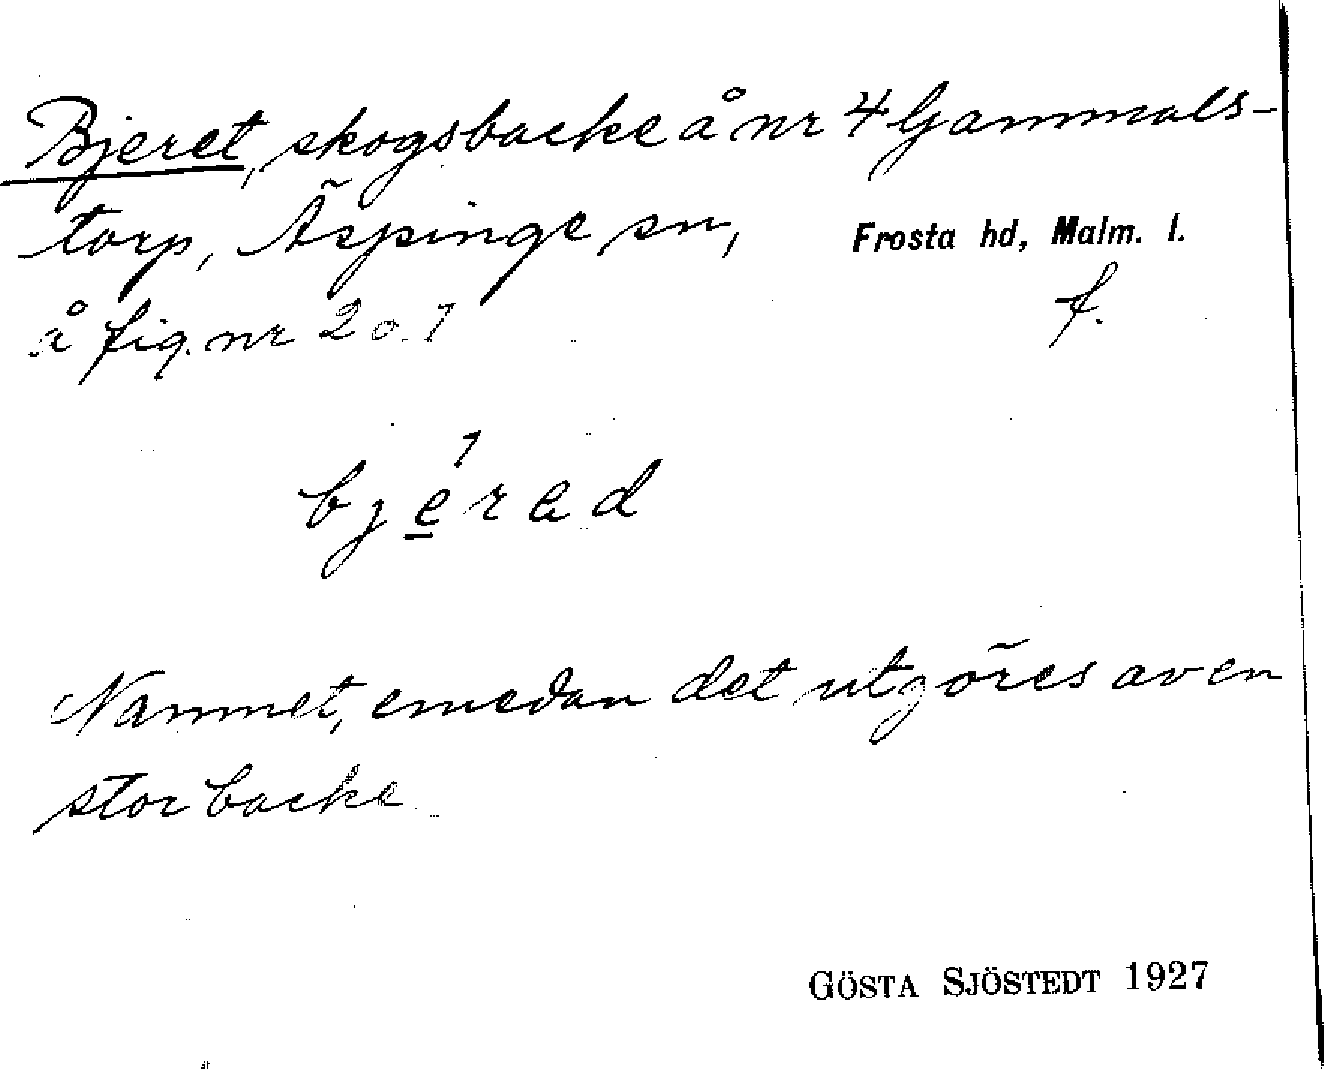 Bjeret, skogsbacke å nr 4 Gammals-
torp, Äspinge sn, Frosta hd, Malm. l.
å fig. nr 2 o. 1 f.
bjerad
Namnet, emedan det utgöres av en
stor backe
GÖSTA SJÖSTEDT 1927